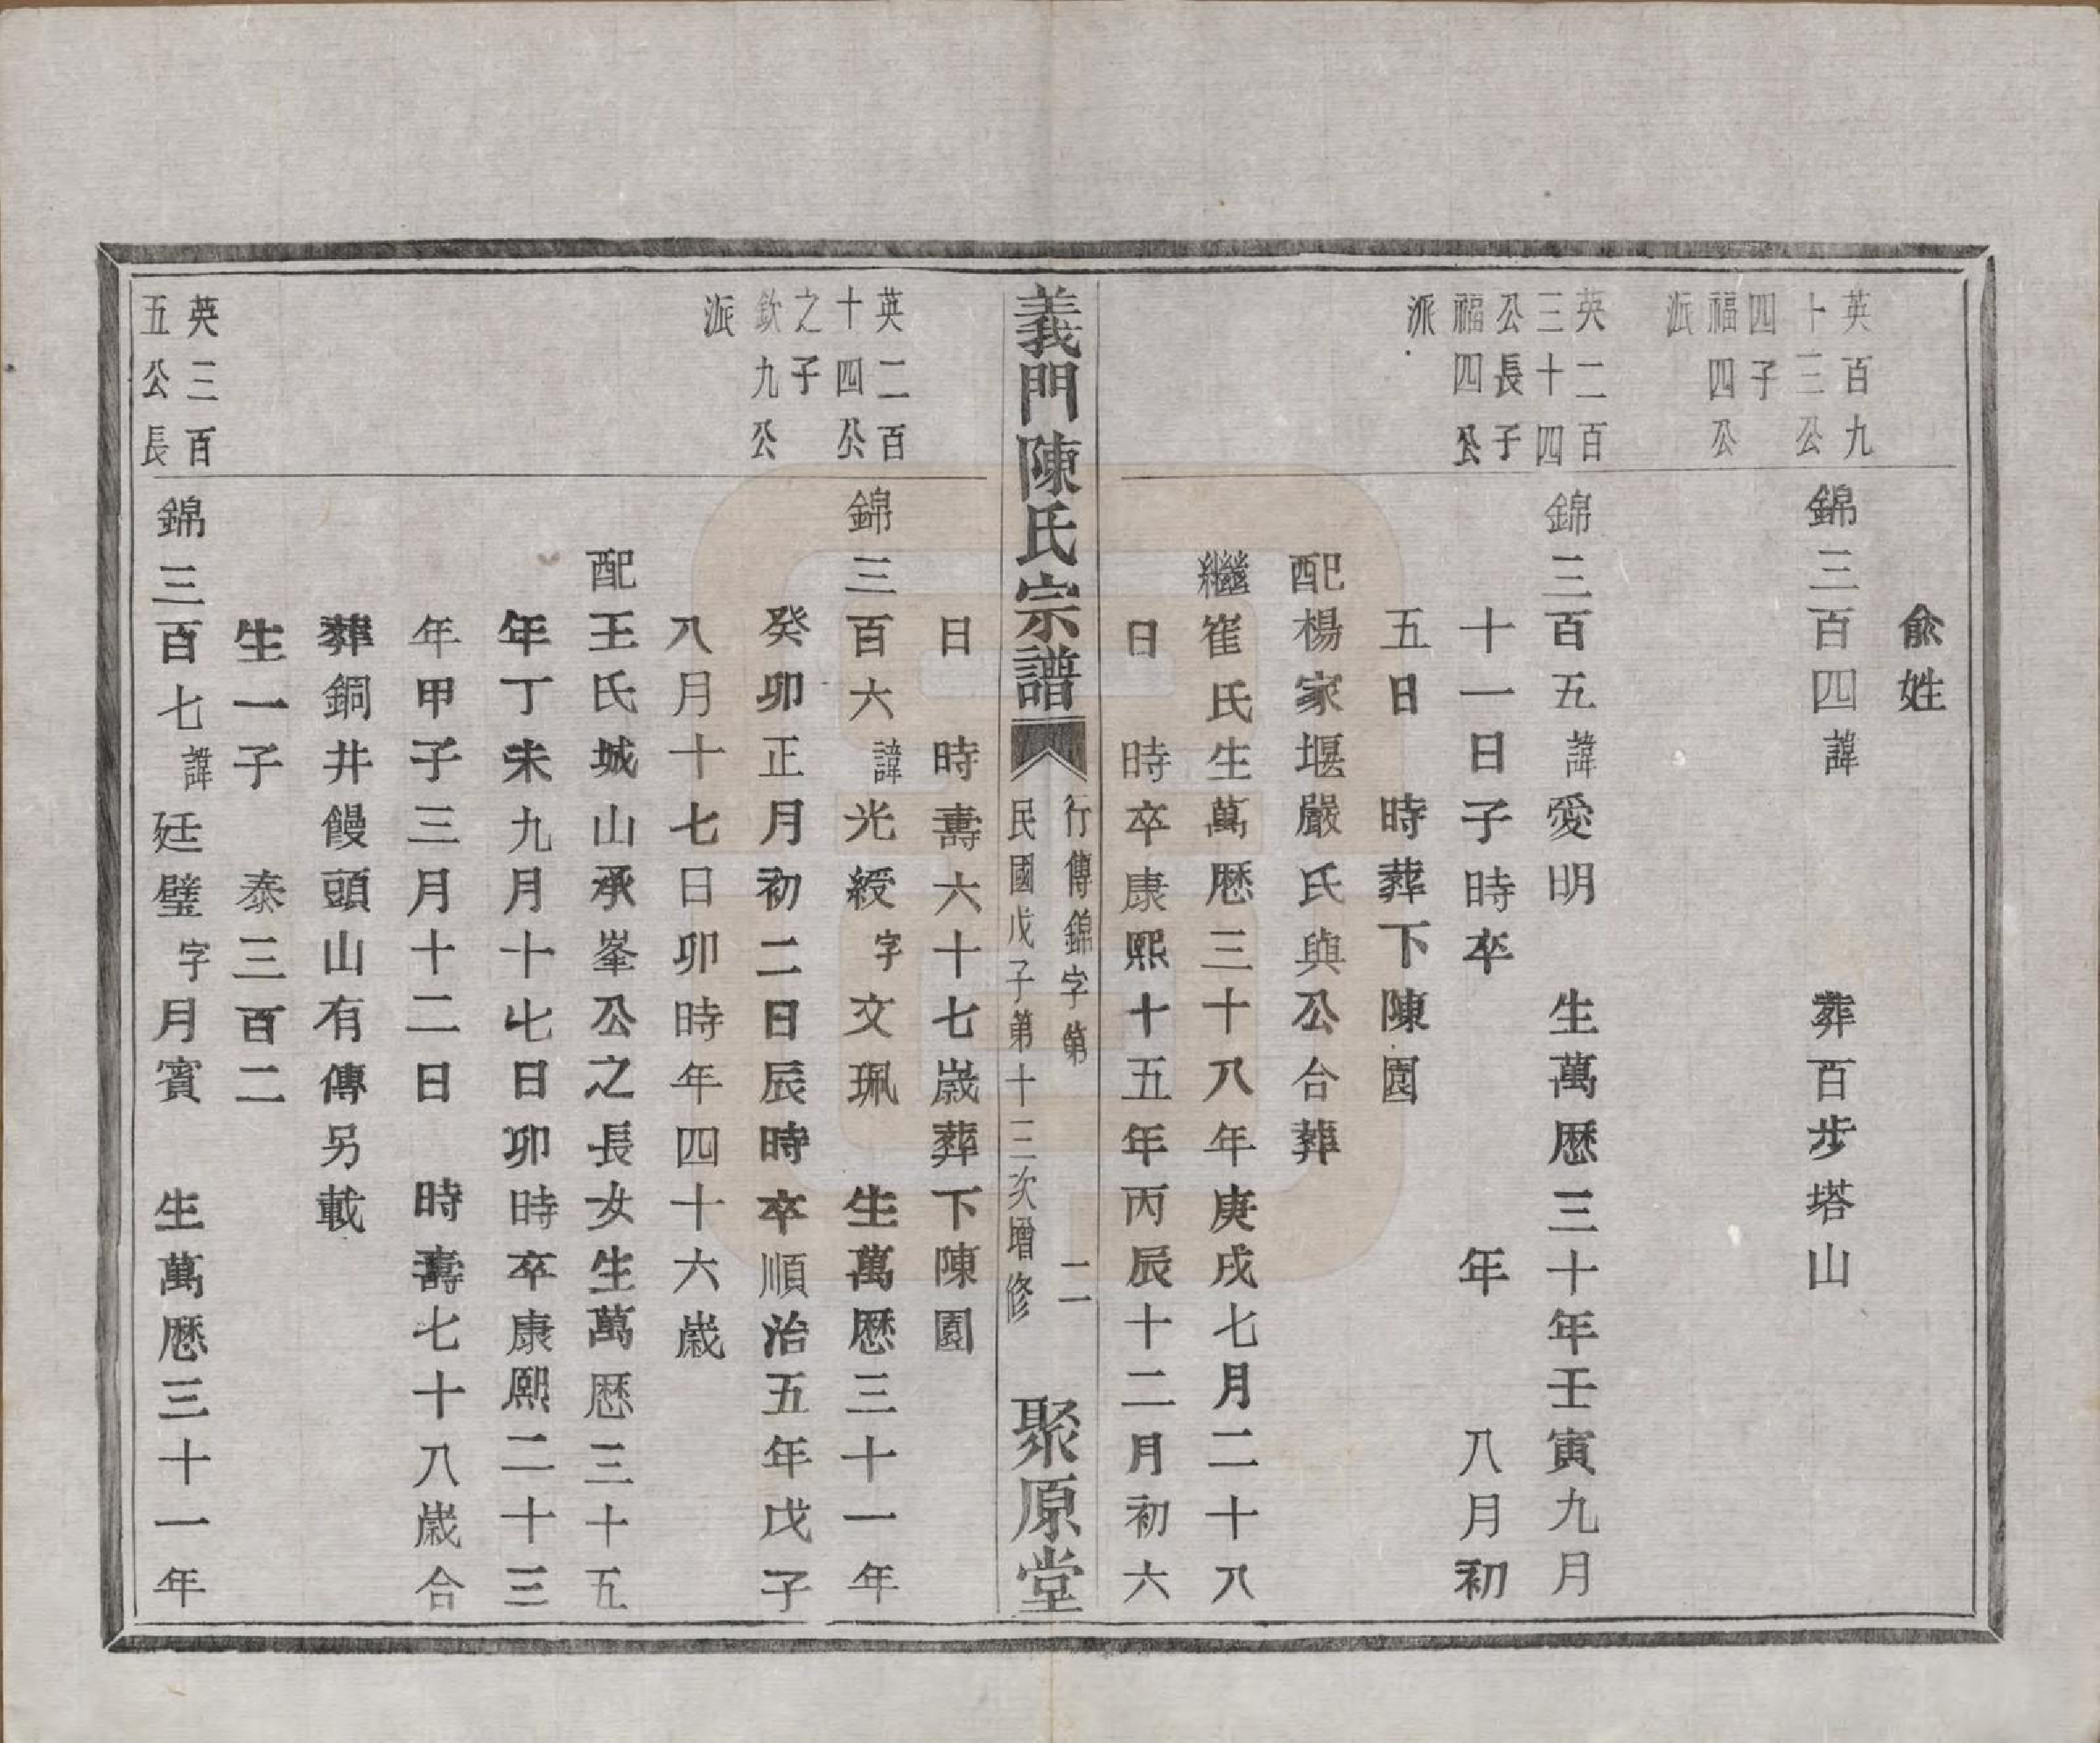 俞姓
英百九
十三公
四子
福四公
派
錦三百四諱 葬百步塔山
英二百
三十四
公長子
福四公
派
錦三百五諱愛明 生萬厯三十年壬寅九月
十一日子時卒 年 八月初
五日 時葬下陳園
配楊家堰嚴氏與公合葬
繼崔氏生萬厯三十八年庚戌七月二十八
日 時卒康熙十五年丙辰十二月初六
義門陳氏宗譜
行傳錦字第 二
民國戊子第十三次增修
聚原堂
日 時壽六十七歲葬下陳園
英二百
十四公
之子
欽九公
派
錦三百六諱光綬字文珮 生萬厯三十一年
癸卯正月初二日辰時卒順治五年戊子
八月十七日卯時年四十六歲
配王氏城山承峯公之長女生萬厯三十五
年丁未九月十七日卯時卒康熙二十三
年甲子三月十二日 時壽七十八歲合
葬銅井饅頭山有傳另載
生一子 泰三百二
英三百
五公長
錦三百七諱廷璧字月賓 生萬厯三十一年